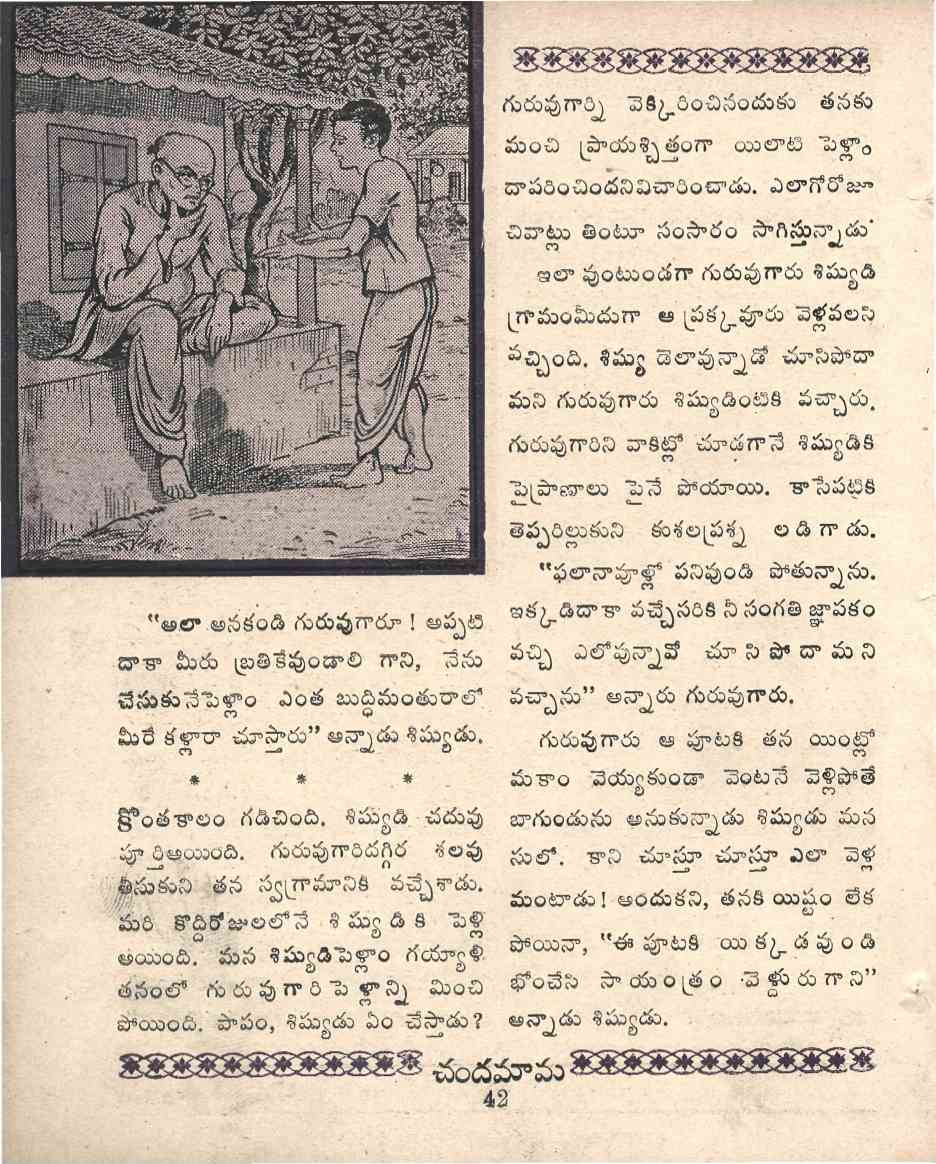 “అలా అనకండి గురువుగారూ ! అప్పటి
దాకా మీరు బ్రతికేవుండాలి గాని, నేను
చేసుకునేపెళ్లాం ఎంత బుద్ధిమంతురాలో
మీరే కళ్లారా చూస్తారు” అన్నాడు శిష్యుడు.
* * *
కొంతకాలం గడిచింది. శిష్యుడి చదువు
పూర్తిఅయింది. గురువుగారిదగ్గిర శలవు
తీసుకుని తన స్వగ్రామానికి వచ్చేశాడు.
మరి కొద్దిరోజులలోనే శిష్యుడికి పెళ్లి
అయింది. మన శిష్యుడిపెళ్లాం గయ్యాళి
తనంలో గురువుగారిపెళ్లాన్ని మించి
పోయింది. పాపం, శిష్యుడు ఏం చేస్తాడు?
గురువుగార్ని వెక్కిరించినందుకు తనకు
మంచి ప్రాయశ్చిత్తంగా యిలాటి పెళ్లాం
దాపరించిందనివిచారించాడు. ఎలాగోరోజూ
చివాట్లు తింటూ సంసారం సాగిస్తున్నాడు.
ఇలా వుంటుండగా గురువుగారు శిష్యుడి
గ్రామంమీదుగా ఆ ప్రక్కవూరు వెళ్లవలసి
వచ్చింది. శిష్యు డెలావున్నాడో చూసిపోదా
మని గురువుగారు శిష్యుడింటికి వచ్చారు.
గురువుగారిని వాకిట్లో చూడగానే శిష్యుడికి
పైప్రాణాలు పైనే పోయాయి. కాసేపట్లికి
తెప్పరిల్లుకుని కుశలప్రశ్న లడిగాడు.
“ఫలానావూళ్లో పనివుండి పోతున్నాను.
ఇక్కడిదాకా వచ్చేసరికి నీ సంగతి జ్ఞాపకం
వచ్చి ఎలోవున్నావో చూసిపోదామని
వచ్చాను” అన్నారు గురువుగారు.
గురువుగారు ఆ పూటకి తన యింట్లో
మకాం వెయ్యకుండా వెంటనే వెళ్లిపోతే
బాగుండును అనుకున్నాడు శిష్యుడు మన
సులో. కాని చూస్తూ చూస్తూ ఎలా వెళ్ల
మంటాడు! అందుకని, తనకి యిష్టం లేక
పోయినా, “ఈ పూటకి యిక్కడవుండి
భోంచేసి సాయంత్రం వెళ్దురుగాని”
అన్నాడు శిష్యుడు.
చందమామ
42